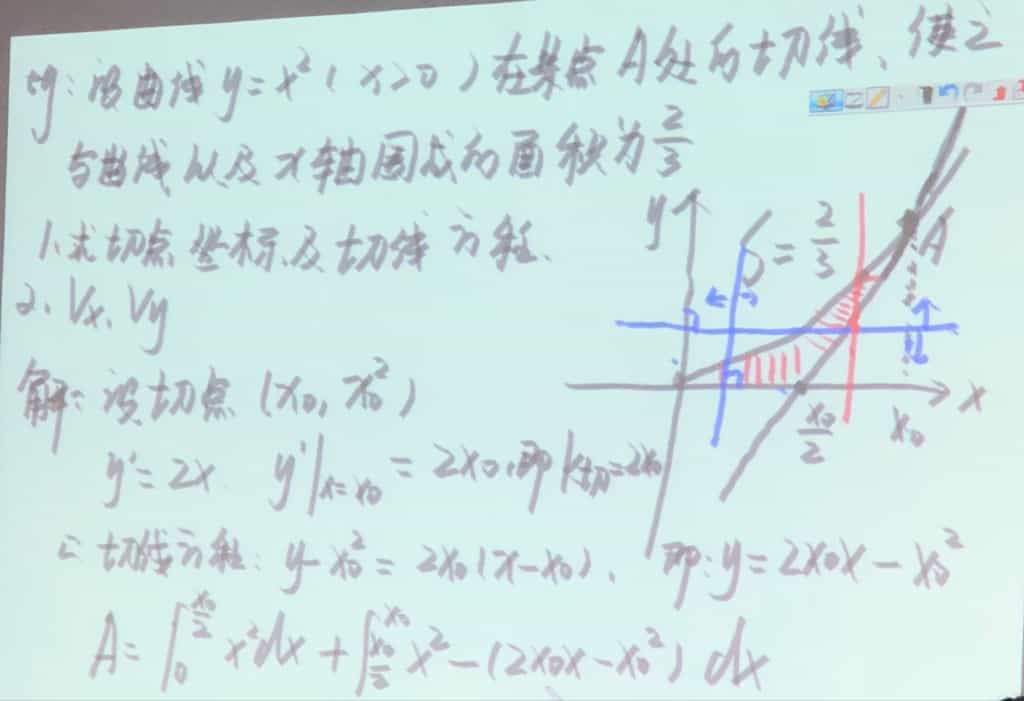 例:设曲线 y=x²(x>0)在某点A处的切线、使之
与曲线以及x轴围成的面积为2/3
1.求切点坐标及切线方程.
2. Vx, Vy
y
S=2/3
A
x₀/2
x₀
x
解:设切点(x₀, x₀²)
y'=2x. y'|x=x₀ = 2x₀,即k切=2x₀
∴切线方程:y-x₀²=2x₀(x-x₀). 即:y=2x₀x-x₀²
A=∫₀^(x₀/2) x²dx+∫_(x₀/2)^(x₀) x²-(2x₀x-x₀²) dx